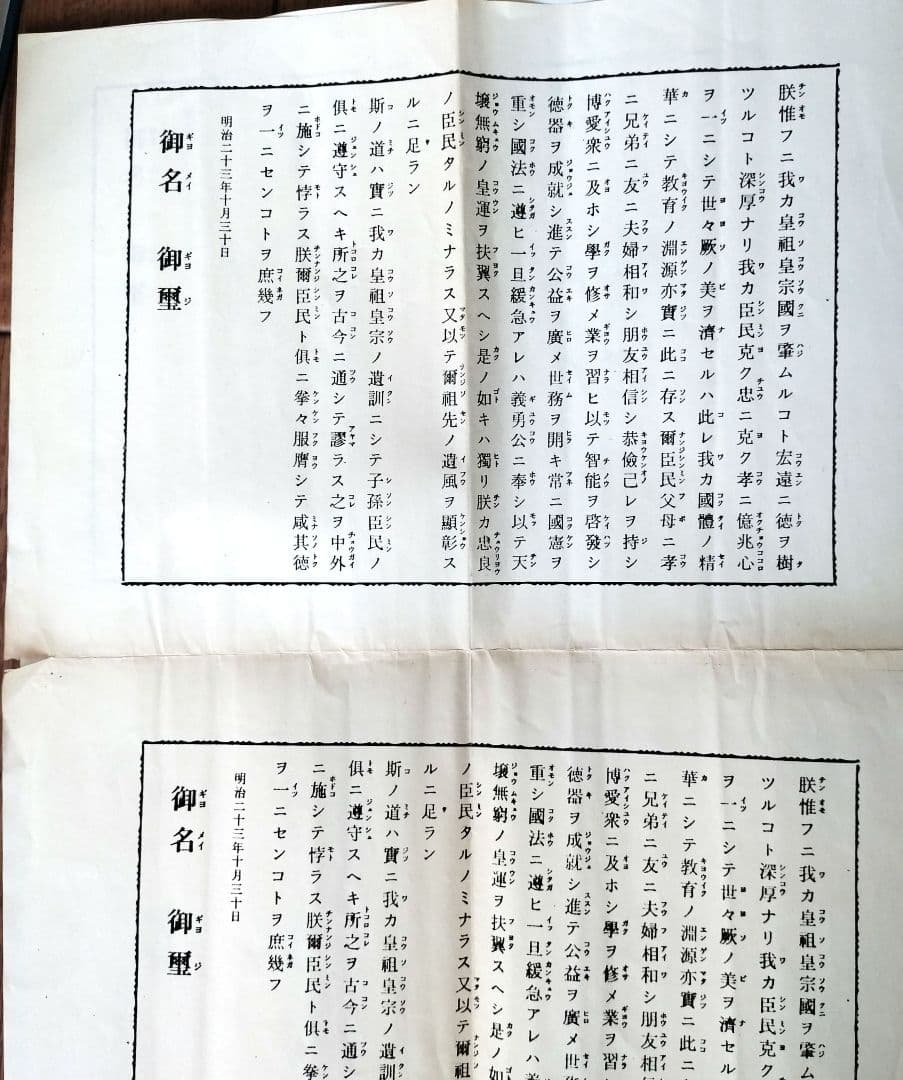 朕惟フニ我カ皇祖皇宗國ヲ肇ムルコト宏遠ニ德ヲ樹
ツルコト深厚ナリ我カ臣民克ク忠ニ克ク孝ニ億兆心
ヲ一ニシテ世々厥ノ美ヲ濟セルハ此レ我カ國體ノ精
華ニシテ教育ノ淵源亦實ニ此ニ存ス爾臣民父母ニ孝
ニ兄弟ニ友ニ夫婦相和シ朋友相信シ恭儉己レヲ持シ
博愛衆ニ及ホシ學ヲ修メ業ヲ習ヒ以テ智能ヲ啓發シ
德器ヲ成就シ進テ公益ヲ廣メ世務ヲ開キ常ニ國憲ヲ
重シ國法ニ遵ヒ一旦緩急アレハ義勇公ニ奉シ以テ天
壤無窮ノ皇運ヲ扶翼スヘシ是ノ如キハ獨リ朕カ忠良
ノ臣民タルノミナラス又以テ爾祖先ノ遺風ヲ顯彰ス
ルニ足ラン
斯ノ道ハ實ニ我カ皇祖皇宗ノ遺訓ニシテ子孫臣民ノ
俱ニ遵守スヘキ所之ヲ古今ニ通シテ謬ラス之ヲ中外
ニ施シテ悖ラス朕爾臣民ト俱ニ拳々服膺シテ咸其德
ヲ一ニセンコトヲ庶幾フ
明治二十三年十月三十日
御名 御璽
朕惟フニ我カ皇祖皇宗國ヲ肇ム
ツルコト深厚ナリ我カ臣民克ク
ヲ一ニシテ世々厥ノ美ヲ濟セル
華ニシテ教育ノ淵源亦實ニ此ニ
ニ兄弟ニ友ニ夫婦相和シ朋友相
博愛衆ニ及ホシ學ヲ修メ業ヲ習
德器ヲ成就シ進テ公益ヲ廣メ世
重シ國法ニ遵ヒ一旦緩急アレハ
壤無窮ノ皇運ヲ扶翼スヘシ是ノ如
ノ臣民タルノミナラス又以テ爾祖
ルニ足ラン
斯ノ道ハ實ニ我カ皇祖皇宗ノ遺訓
俱ニ遵守スヘキ所之ヲ古今ニ通シ
ニ施シテ悖ラス朕爾臣民ト俱ニ拳
ヲ一ニセンコトヲ庶幾フ
明治二十三年十月三十日
御名 御璽